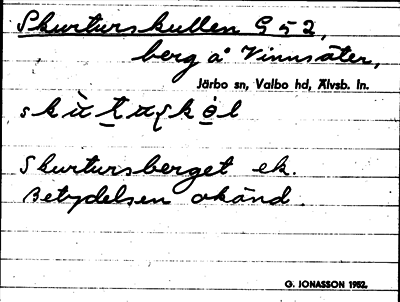 Skurturskullen G 5 2,
berg å Vinnsäter,
Järbo sn, Valbo hd, Älvsb. ln.
Skurtursberget ek.
Betydelsen okänd.
G. JONASSON 1952.